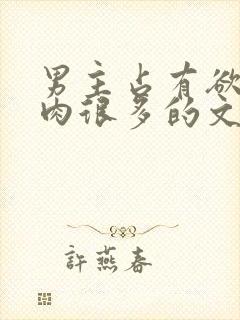 男主占有欲
肉很多的文
許燕春